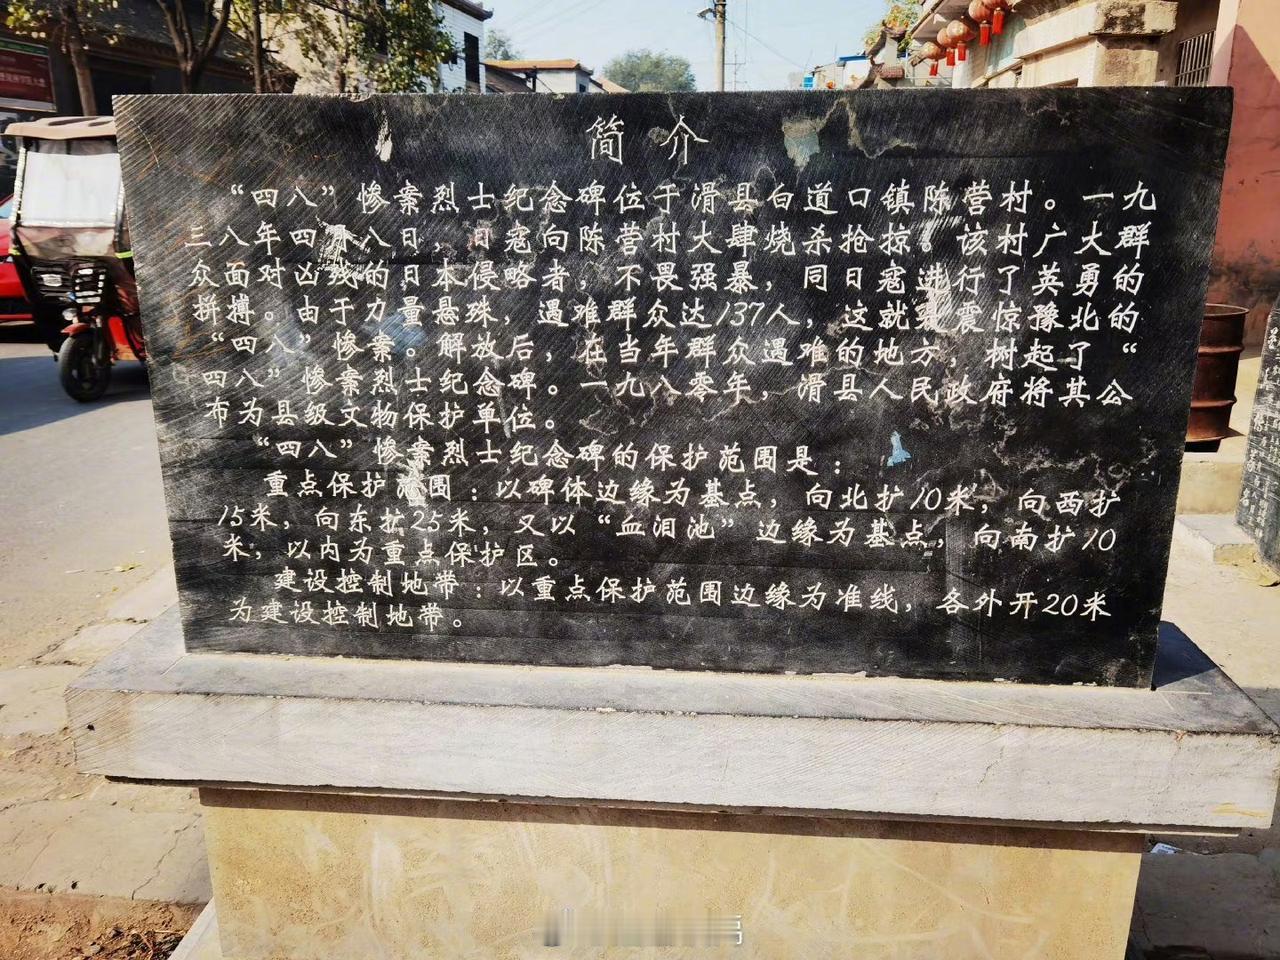 简介
“四八”惨案烈士纪念碑位于滑县白道口镇陈营村。一九
三八年四月八日，日寇向陈营村大肆烧杀抢掠。该村广大群
众面对凶残的日本侵略者，不畏强暴，同日寇进行了英勇的
拼搏。由于力量悬珠，遇难群众达137人，这就是震惊豫北的
“四八”惨案。解放后，在当年群众遇难的地方，树起了“
四八”惨案烈士纪念碑。一九八零年，滑县人民政府将其公
布为县级文物保护单位。
“四八”惨案烈士纪念碑的保护范围是：
重点保护范围：以碑体边缘为基点，向北扩10米，向西扩
15米，向东扩25米，又以“血泪池”边缘为基点，向南扩10
米，以内为重点保护区。
建设控制地带：以重点保护范围边缘为准线，各外开20米
为建设控制地带。